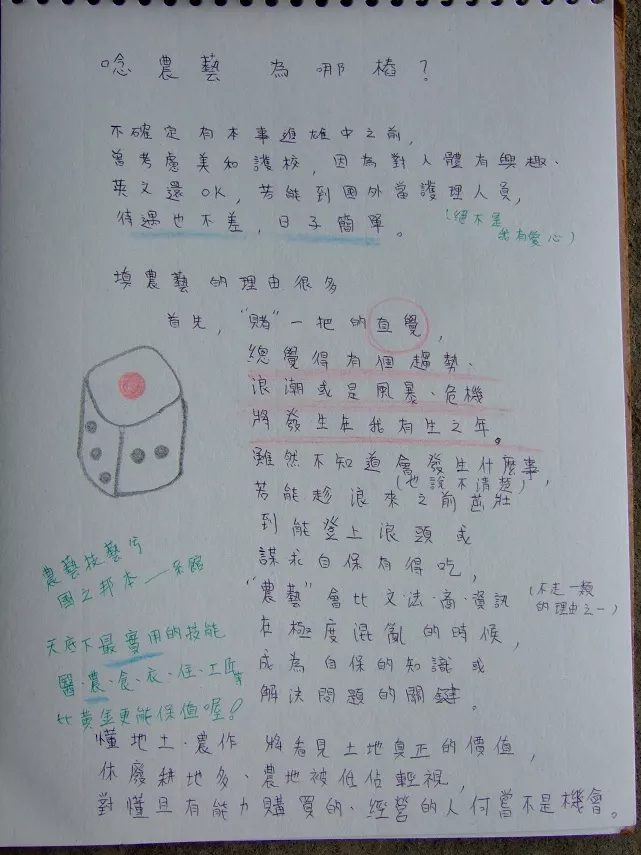 唸農藝 為哪樁？
不確定有本事進雄中之前，
曾考慮美和護校，因為對人體有興趣、
英文還OK，若能到國外當護理人員，
待遇也不差，日子簡單。
(絕不是
我有愛心)
填農藝的理由很多
首先，"賭"一把的直覺，
總覺得有個趨勢、
浪潮或是風暴、危機
將發生在我有生之年。
雖然不知道會發生什麼事，
(也說不清楚)
若能趁浪來之前茁壯
到能登上浪頭或
謀求自保有得吃，
"農藝"會比文、法、商、資訊
(不走一類
的理由之一)
在極度混亂的時候，
成為自保的知識或
解決問題的關鍵。
農藝技藝兮
國之邦本——系館
天底下最實用的技能
醫、農、食、衣、住、工匠等
比黃金更能保值喔！
懂地土、農作 將看見土地真正的價值，
休廢耕地多、農地被低估輕視，
對懂且有能力購買的、經營的人何嘗不是機會。